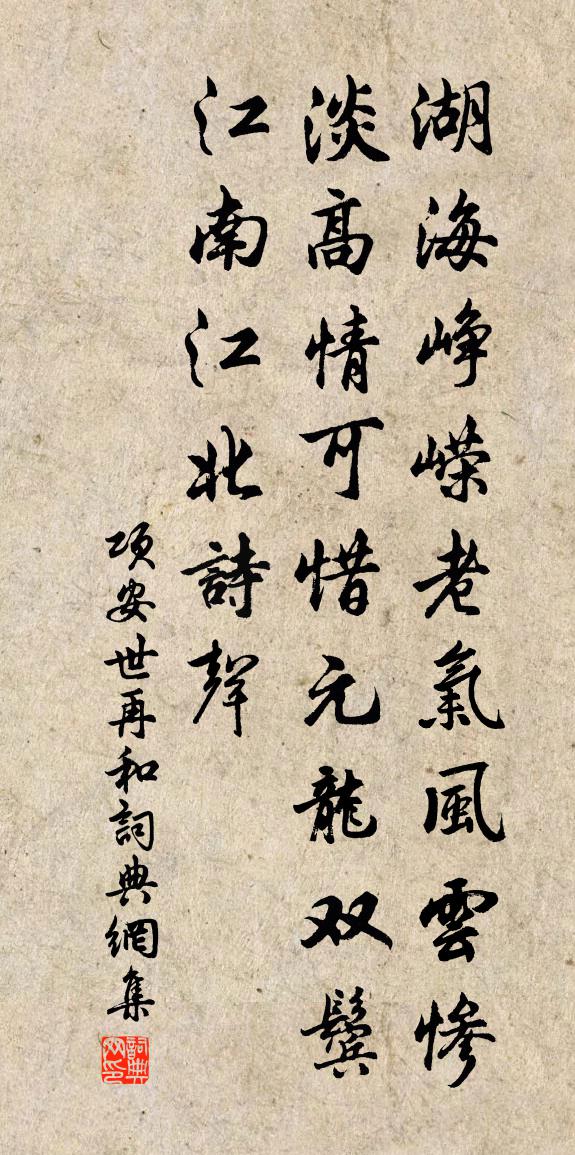 湖海峥嶸老氣風雲惨
淡高情可惜元龍双鬓
江南江北詩聲
项安世再和詞典網集
詞典網印